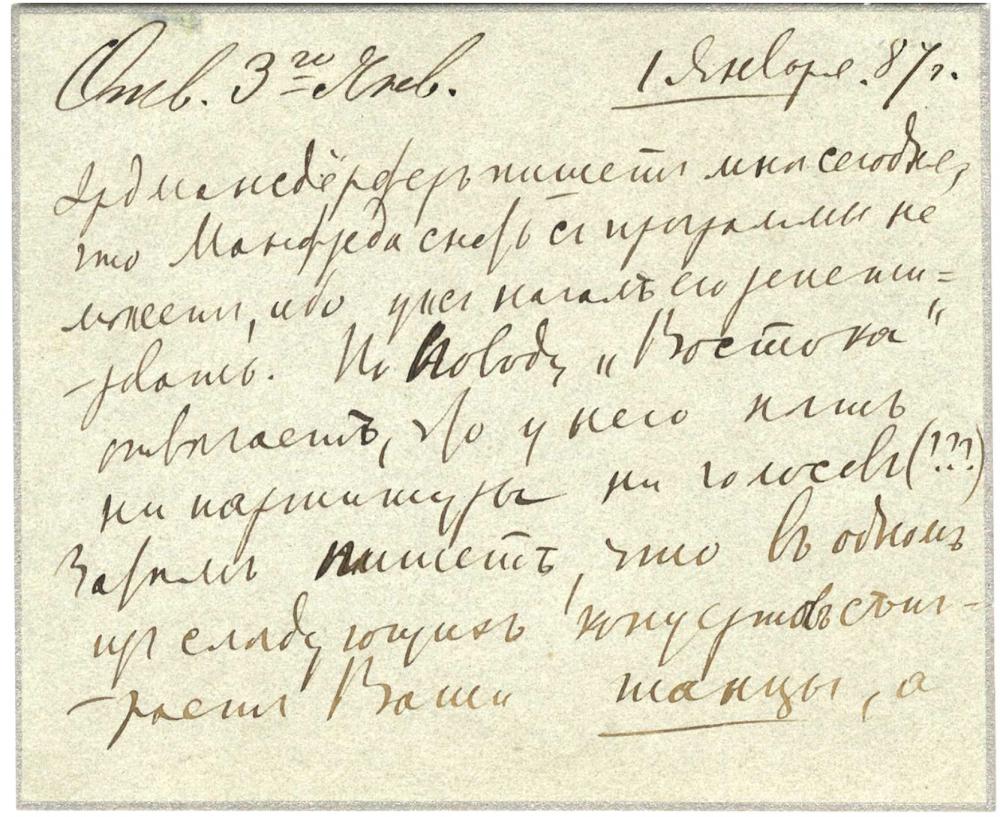 Отв. 3го Янв. 1 Января. 87 г.
Эрдмансдёрферъ пишетъ мнѣ сегодня,
что Манфреда снять съ программы не
можетъ, ибо уже началъ его репети-
-ровать. По поводу „Востока“
отвѣчаетъ, что у него нѣтъ
ни партитуры ни голосовъ (???)
Затѣмъ пишетъ, что въ одномъ
изъ слѣдующихъ концертовъ сыг-
-раетъ Ваши танцы, а